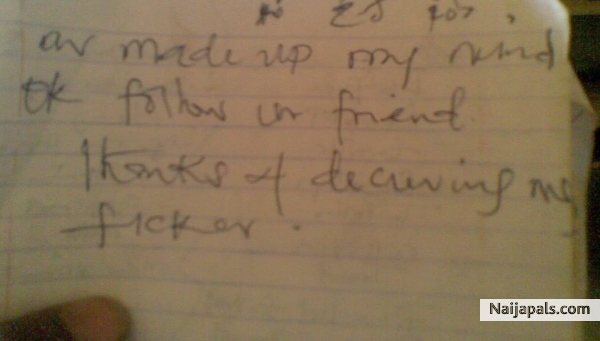 av made up my mind
ok follow ur friend
thanks 4 deceiving me
ficker.
Naijapals.com